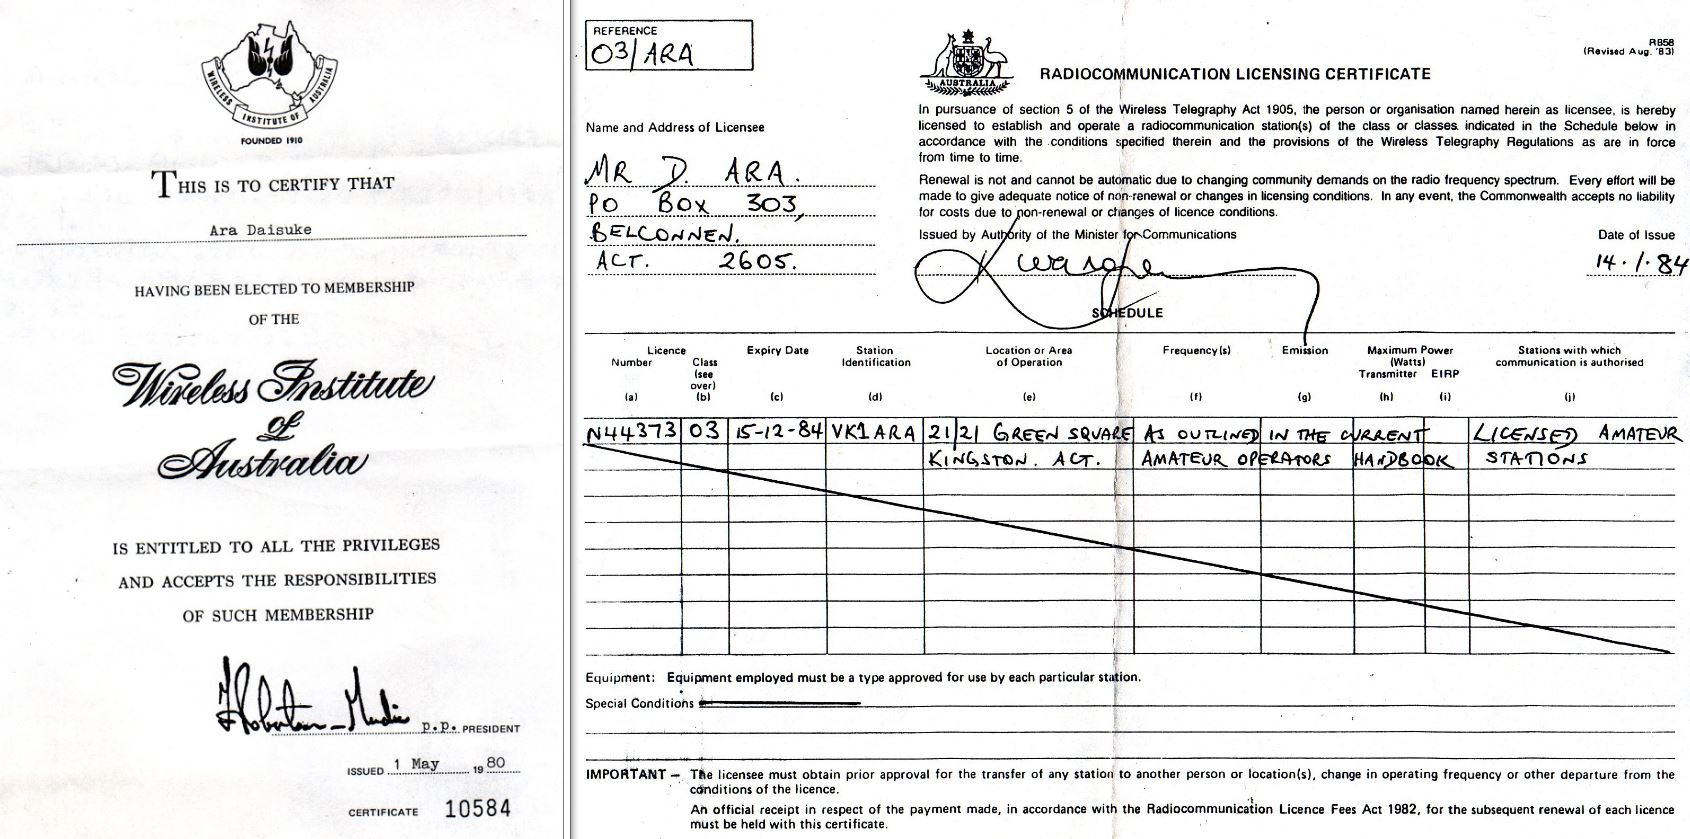 WIRELESS INSTITUTE OF AUSTRALIA
FOUNDED 1910
THIS IS TO CERTIFY THAT
Ara Daisuke
HAVING BEEN ELECTED TO MEMBERSHIP
OF THE
Wireless Institute
of
Australia
IS ENTITLED TO ALL THE PRIVILEGES
AND ACCEPTS THE RESPONSIBILITIES
OF SUCH MEMBERSHIP
p.p. PRESIDENT
ISSUED 1 May 1980
CERTIFICATE 10584
REFERENCE
03/ARA
AUSTRALIA
R858
(Revised Aug. '83)
RADIOCOMMUNICATION LICENSING CERTIFICATE
In pursuance of section 5 of the Wireless Telegraphy Act 1905, the person or organisation named herein as licensee, is hereby
licensed to establish and operate a radiocommunication station(s) of the class or classes indicated in the Schedule below in
accordance with the conditions specified therein and the provisions of the Wireless Telegraphy Regulations as are in force
from time to time.
Renewal is not and cannot be automatic due to changing community demands on the radio frequency spectrum. Every effort will be
made to give adequate notice of non-renewal or changes in licensing conditions. In any event, the Commonwealth accepts no liability
for costs due to non-renewal or changes of licence conditions.
Name and Address of Licensee
MR D. ARA.
PO BOX 303,
BELCONNEN.
ACT. 2605.
Issued by Authority of the Minister for Communications
Date of Issue
14.1.84
SCHEDULE
Licence
Number
(a)
Class
(see
over)
(b)
Expiry Date
(c)
Station
Identification
(d)
Location or Area
of Operation
(e)
Frequency(s)
(f)
Emission
(g)
Maximum Power
(Watts)
Transmitter EIRP
(h) (i)
Stations with which
communication is authorised
(j)
N44373 03 15-12-84 VK1ARA 21/21 GREEN SQUARE AS OUTLINED IN THE CURRENT LICENSED AMATEUR
KINGSTON. ACT. AMATEUR OPERATORS HANDBOOK STATIONS
Equipment: Equipment employed must be a type approved for use by each particular station.
Special Conditions
IMPORTANT – The licensee must obtain prior approval for the transfer of any station to another person or location(s), change in operating frequency or other departure from the
conditions of the licence.
An official receipt in respect of the payment made, in accordance with the Radiocommunication Licence Fees Act 1982, for the subsequent renewal of each licence
must be held with this certificate.